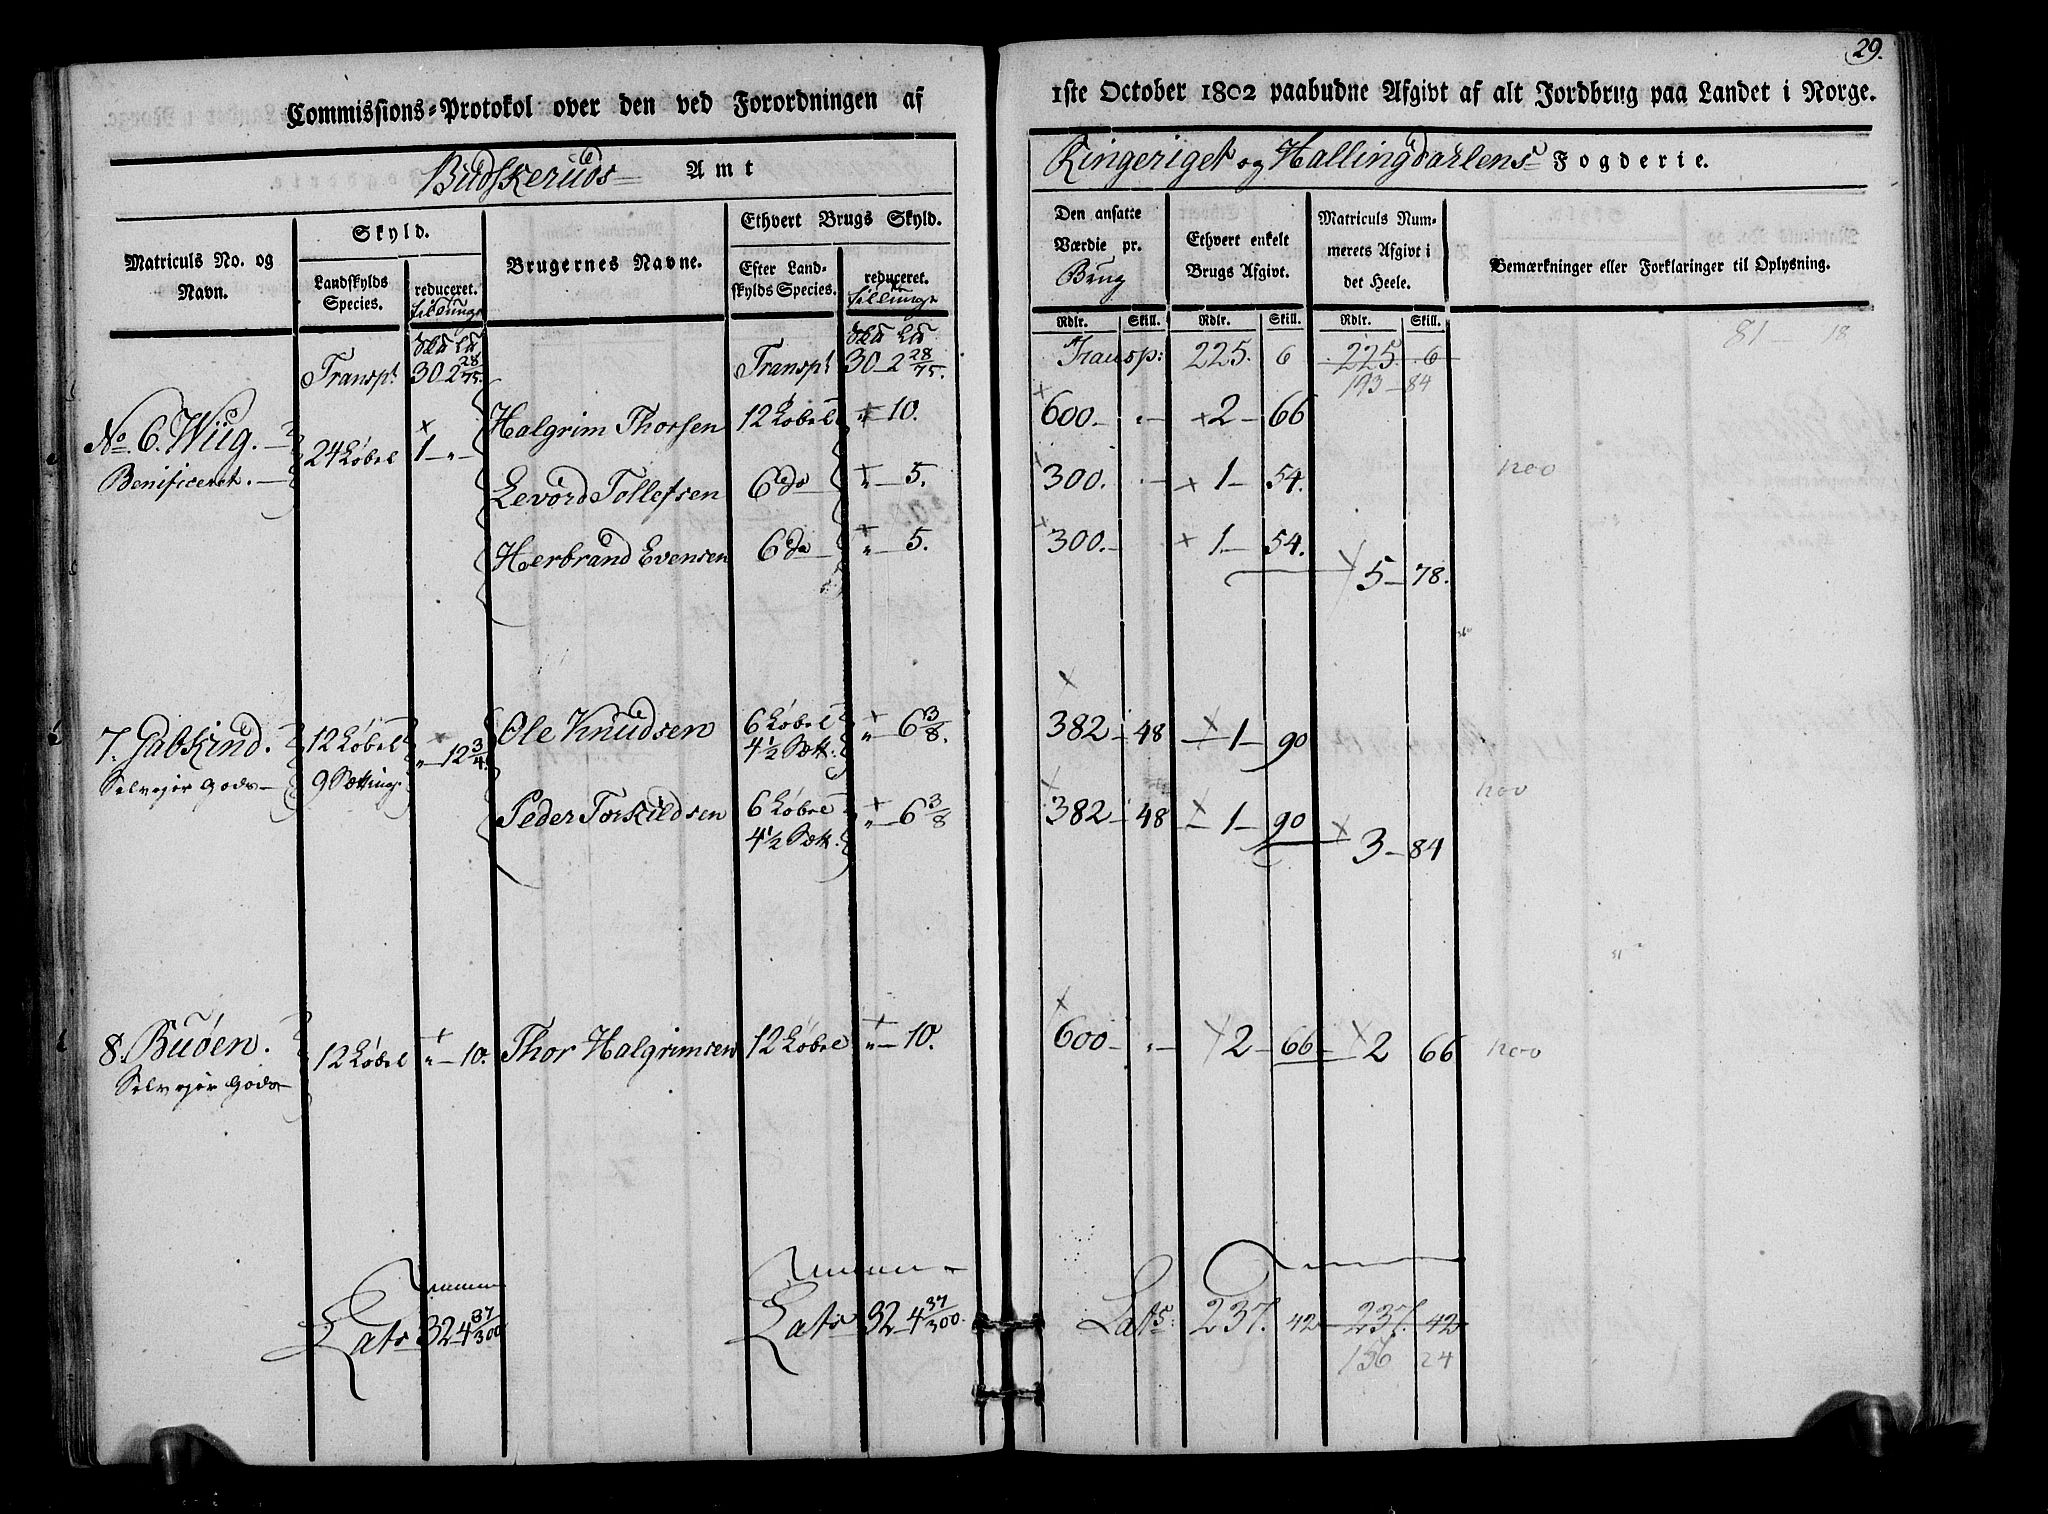 29.
Commissions-Protokol over den ved Forordningen af 1ste October 1802 paabudne Afgivt af alt Jordbrug paa Landet i Norge.
Budskeruds Amt
Ringeriget og Hallingdarlens Fogderie.
Matriculs No. og Navn.
Skyld.
Landskylds Species.
reduceret.
Brugernes Navne.
Ethvert Brugs Skyld.
Efter Landskylds Species.
reduceret.
Den ansatte Værdie pr. Brug
Ethvert enkelt Brugs Afgivt.
Matriculs Nummerets Afgivt i det Heele.
Bemærkninger eller Forklaringer til Oplysning.
Rdlr. Skill. Rdlr. Skill. Rdlr. Skill.
Transpt 30 2 28/75. Transpt 30 2 28/75. Transp: 225. 6 225. 6 81 18
193 84
No. 6. Wiig. 24 Løbel 1 " Halgrim Thorsen 12 Løbel " 10. 600. " 2 66
Benificeret. Levord Tollefsen 6 do " 5. 300. " 1 54.
Herbrand Evensen 6 do " 5. 300. 1 54. 5 78.
7. Gabkind. 12 Løbel " 12 3/4 Ole Knudsen 6 Løbel " 6 3/8. 382 48 1 90
Selvejer Gods 9 Sætting. 4 1/2 Sætt.
Peder Torkildsen 6 Løbel " 6 3/8 382 48 1 90 3 84
4 1/2 Sætt.
8. Buøen. 12 Løbel " 10. Thor Halgrimsen 12 Løbel " 10. 600 " 2 66 2 66
Selvejer Gods
Lats 32 4 37/300 Lats 32 4 37/300. Lats: 237. 42 237. 42
156 24